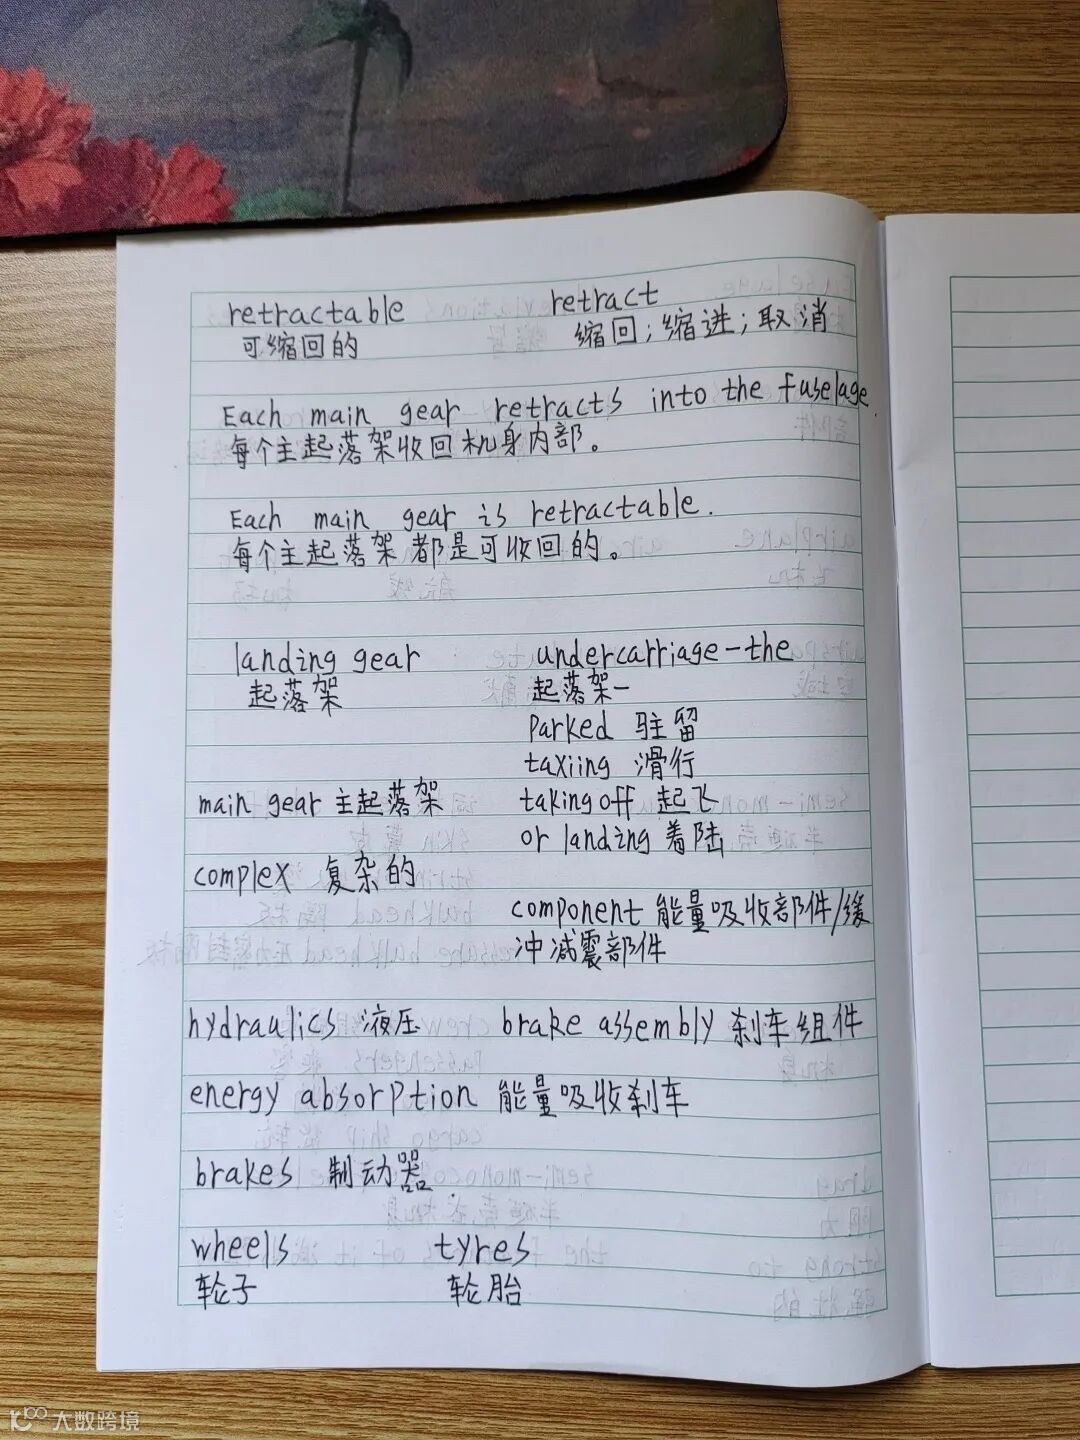 retractable retract
可缩回的 缩回；缩进；取消
Each main gear retracts into the fuselage.
每个主起落架收回机身内部。
Each main gear is retractable.
每个主起落架都是可收回的。
landing gear undercarriage-the
起落架 起落架一
Parked 驻留
taxiing 滑行
main gear 主起落架 taking off 起飞
or landing 着陆
complex 复杂的
component 能量吸收部件/缓
冲减震部件
hydraulics 液压 brake assembly 刹车组件
energy absorption 能量吸收刹车
brakes 制动器
wheels tyres
轮子 轮胎
大数跨境